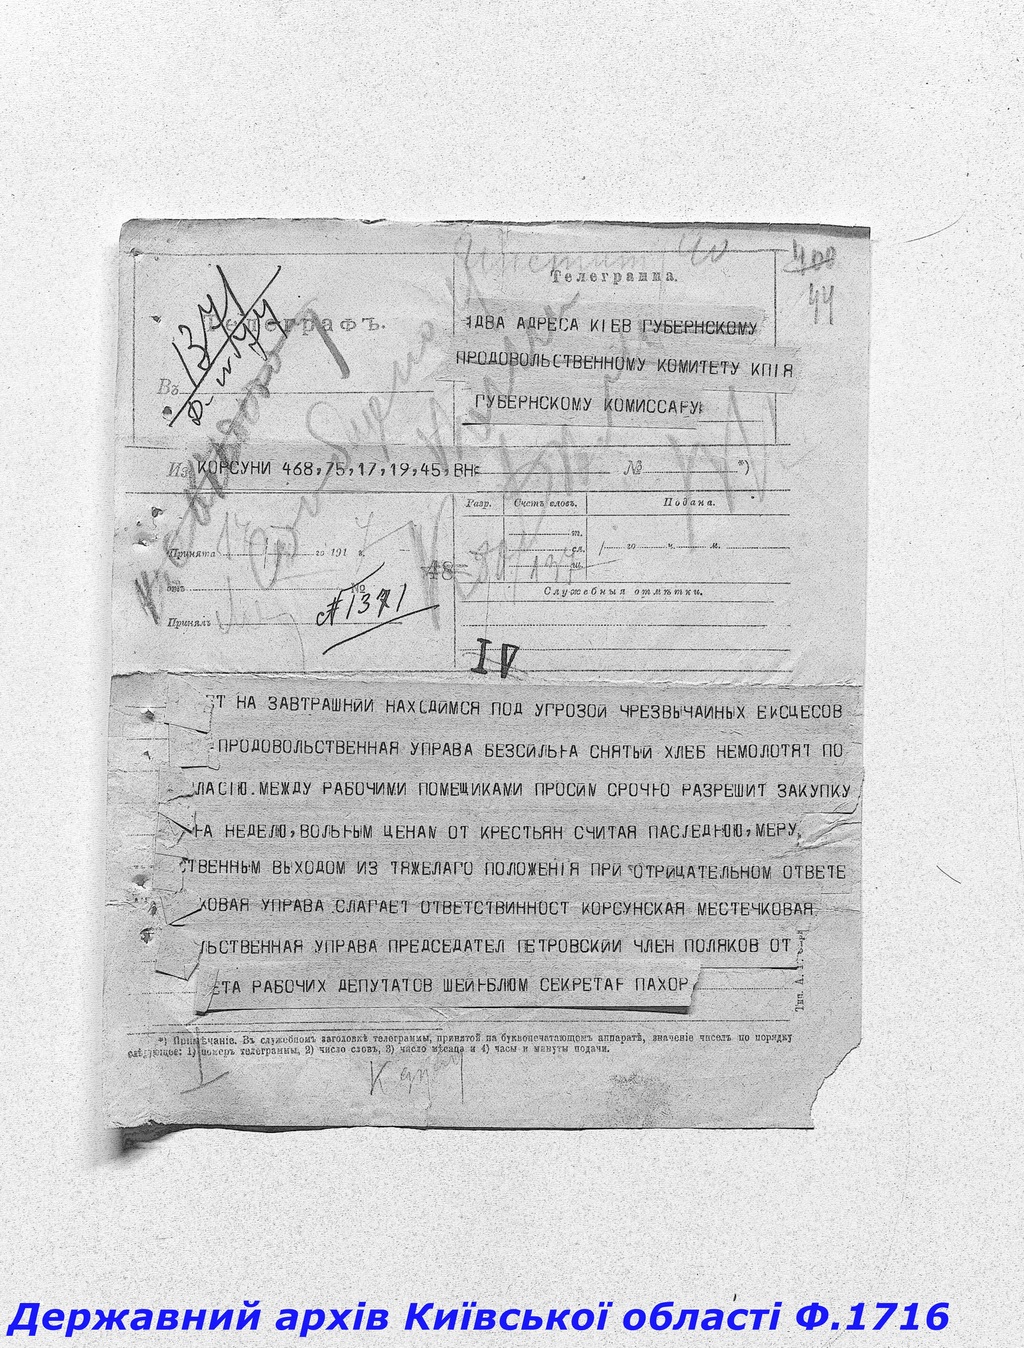 400
44
Телеграмма.
Телеграфъ.
1371
2ДВА АДРЕСА КІЕВ ГУБЕРНСКОМУ
ПРОДОВОЛЬСТВЕННОМУ КОМИТЕТУ КПІЯ
ГУБЕРНСКОМУ КОМИССАРУ
Въ
Из КОРСУНИ 468,75,17,19,45, ВНЕ № *)
Разр. Счетъ словъ. Подана.
Принята го 191 7 г.
т.
сл. го ч. м.
ш.
48
отъ №
Служебныя отмѣтки.
Принялъ #1371
IV
ЕТ НА ЗАВТРАШНИЙ НАХОДИМСЯ ПОД УГРОЗОЙ ЧРЕЗВЫЧАЙНЫХ ЕКСЦЕСОВ
ПРОДОВОЛЬСТВЕННАЯ УПРАВА БЕЗСИЛЬНА СНЯТЫЙ ХЛЕБ НЕМОЛОТЯТ ПО
ЛАСІЮ.МЕЖДУ РАБОЧИМИ ПОМЕЩИКАМИ ПРОСИМ СРОЧНО РАЗРЕШИТ ЗАКУПКУ
НА НЕДЕЛЮ,ВОЛЬНЫМ ЦЕНАМ ОТ КРЕСТЬЯН СЧИТАЯ ПАСЛЕДНЮЮ,МЕРУ,
ТВЕННЫМ ВЫХОДОМ ИЗ ТЯЖЕЛАГО ПОЛОЖЕНІЯ ПРИ ОТРИЦАТЕЛЬНОМ ОТВЕТЕ
КОВАЯ УПРАВА СЛАГАЕТ ОТВЕТСТВИННОСТ КОРСУНСКАЯ МЕСТЕЧКОВАЯ
ЛЬСТВЕННАЯ УПРАВА ПРЕДСЕДАТЕЛ ПЕТРОВСКИЙ ЧЛЕН ПОЛЯКОВ ОТ
ЕТА РАБОЧИХ ДЕПУТАТОВ ШЕЙНБЛЮМ СЕКРЕТАР ПАХОР
*) Примѣчаніе. Въ служебномъ заголовкѣ телеграммы, принятой на буквопечатающемъ аппаратѣ, значеніе чиселъ по порядку
слѣдующее: 1) номеръ телеграммы, 2) число словъ, 3) число мѣсяца и 4) часы и минуты подачи.
Державний архів Київської області Ф.1716